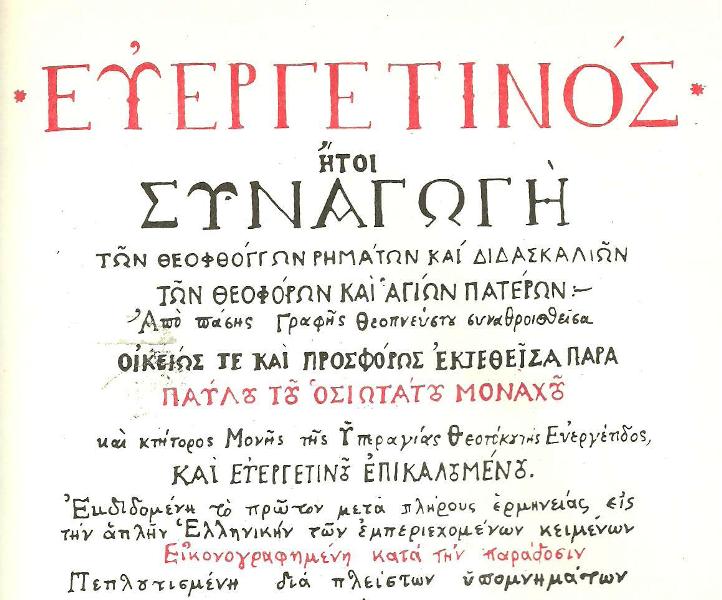 * ΕΥ̓ΕΡΓΕΤΙΝΌΣ *
ἤΤΟΙ
ΣΥΝΑΓΩΓῊ
ΤΩ͂Ν ΘΕΟΦΘΌΓΓΩΝ ΡΗΜΆΤΩΝ ΚΑΊ ΔΙΔΑΣΚΑΛΙΩ͂Ν
ΤΩ͂Ν ΘΕΟΦΌΡΩΝ ΚΑῚ ἉΓΊΩΝ ΠΑΤΈΡΩΝ:-
Ἀπὸ πάσης Γραφῆς Θεοπνεύστȣ συναθροισθεῖσα
ΟἸΚΕΊΩΣ ΤΕ ΚΑῚ ΠΡΟΣΦΌΡΩΣ ἘΚΤΕΘΕΙ͂ΣΑ ΠΑΡΑ
ΠΑΎΛȢ ΤȢ͂ ὉΣΙΩΤΆΤȢ ΜΟΝΑΧȢ͂
καὶ κτήτορος Μονῆς τῆς Ὑπεραγίας Θεοτόκου τῆς Εὐεργέτιδος,
ΚΑῚ ΕΥ̓ΕΡΓΕΤΙΝȢ͂ ἘΠΙΚΑΛȢΜΈΝȢ.
Ἐκδιδομένη τὸ πρῶτον μετὰ πλήρους ἑρμηνείας εἰς
τὴν ἁπλῆν Ἑλληνικήν τῶν ἐμπεριεχομένων κειμένων
Εἰκονογραφημένη κατά τήν παράδοσιν
Πεπλȣτισμένη διά πλείστων ὑπομνημάτων